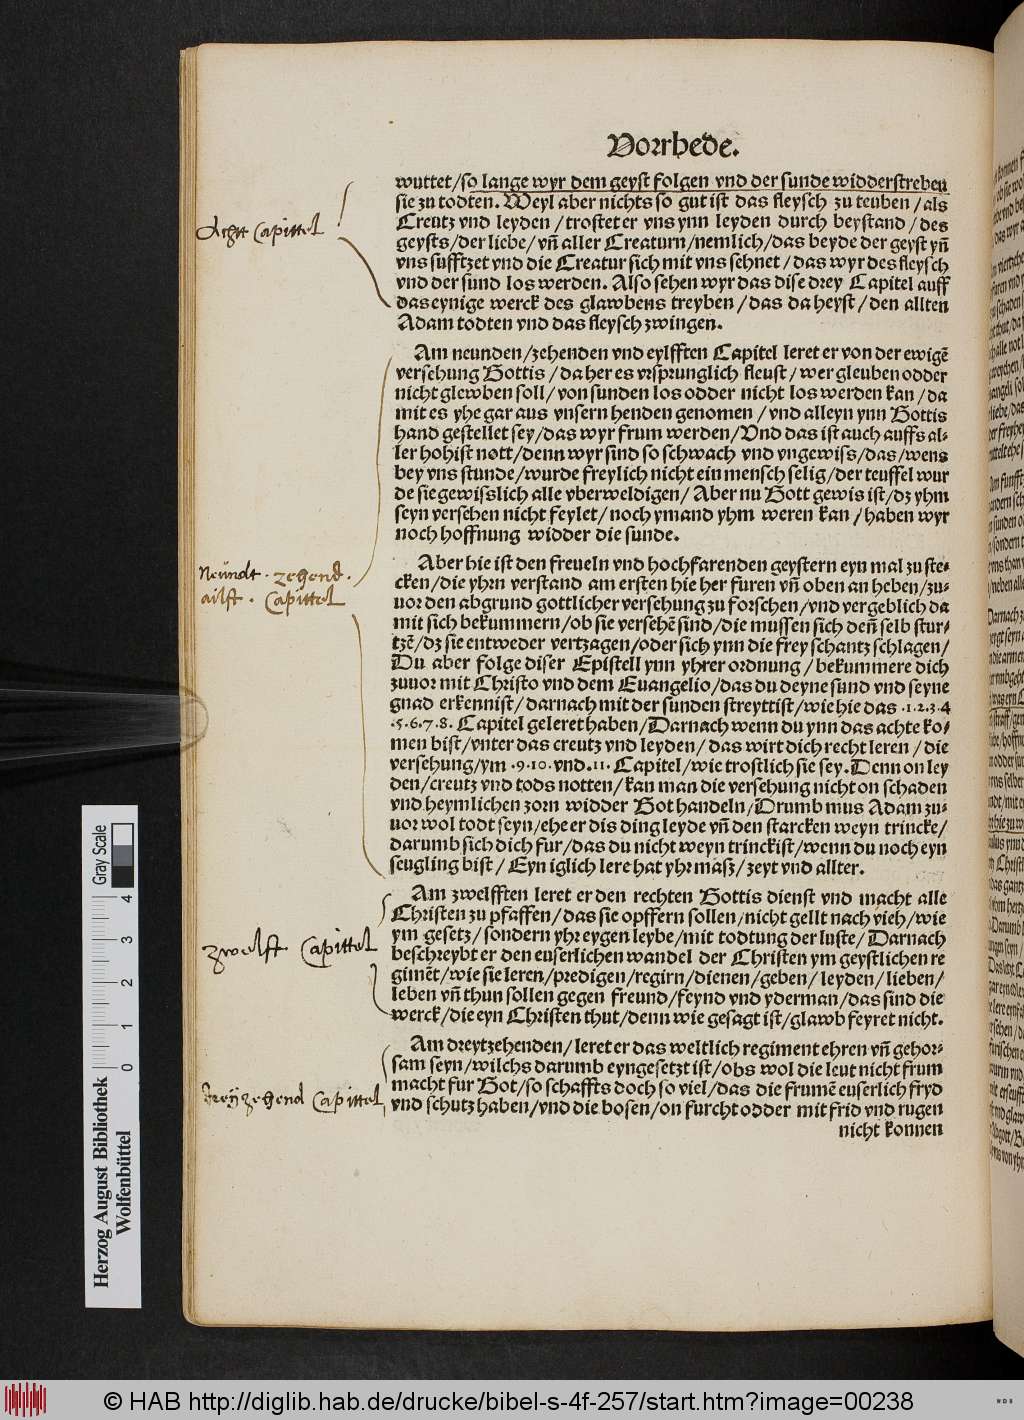 Vorrhede.
wuttet/so lange wyr dem geyst folgen vnd der sunde widderstreben
sie zu todten. Weyl aber nichts so gut ist das fleysch zu teuben/als
Creutz vnd leyden/trostet er vns ynn leyden durch beystand/des
geysts/der liebe/vñ aller Creaturn/nemlich/das beyde der geyst yñ
vns sufftzet vnd die Creatur sich mit vns sehnet/das wyr des fleysch
vnd der sund los werden. Also sehen wyr das dise drey Capitel auff
das eynige werck des glawbens treyben/das da heyst/den allten
Adam todten vnd das fleysch zwingen.
Achtt Capittel
Am neunden/zehenden vnd eylfften Capitel leret er von der ewigẽ
versehung Gottis/da her es vrsprunglich fleust/wer gleuben odder
nicht glewben soll/von sunden los odder nicht los werden kan/da
mit es yhe gar aus vnsern henden genomen/vnd alleyn ynn Gottis
hand gestellet sey/das wyr frum werden/Vnd das ist auch auffs al-
ler hohist nott/denn wyr sind so schwach vnd vngewiss/das/wens
bey vns stunde/wurde freylich nicht ein mensch selig/der teuffel wur
de sie gewisslich alle vberweldigen/Aber nu Gott gewis ist/dz yhm
seyn versehen nicht feylet/noch ymand yhm weren kan/haben wyr
noch hoffnung widder die sunde.
Neundt. zehend.
ailft. Capittel
Aber hie ist den freueln vnd hochfarenden geystern eyn mal zu ste-
cken/die yhrn verstand am ersten hie her furen vñ oben an heben/zu-
uor den abgrund gottlicher versehung zu forschen/vnd vergeblich da
mit sich bekummern/ob sie versehẽ sind/die mussen sich deñ selb stur-
tzẽ/dz sie entweder vertzagen/oder sich ynn die frey schantz schlagen/
Du aber folge diser Epistell ynn yhrer ordnung/bekummere dich
zuuor mit Christo vnd dem Euangelio/das du deyne sund vnd seyne
gnad erkennist/darnach mit der sunden streyttist/wie hie das .1.2.3.4
.5.6.7.8. Capitel geleret haben/Darnach wenn du ynn das achte ko-
men bist/vnter das creutz vnd leyden/das wirt dich recht leren/die
versehung/ym .9.10. vnd .11. Capitel/wie trostlich sie sey. Denn on ley
den/creutz vnd tods notten/kan man die versehung nicht on schaden
vnd heymlichen zorn widder Got handeln/Drumb mus Adam zu-
uor wol todt seyn/ehe er dis ding leyde vñ den starcken weyn trincke/
darumb sich dich fur/das du nicht weyn trinckist/wenn du noch eyn
seugling bist/Eyn iglich lere hat yhr masz/zeyt vnd allter.
Am zwelfften leret er den rechten Gottis dienst vnd macht alle
Christen zu pfaffen/das sie opffern sollen/nicht gellt nach vieh/wie
ym gesetz/sondern yhr eygen leybe/mit todtung der luste/Darnach
beschreybt er den euserlichen wandel der Christen ym geystlichen re
gimẽt/wie sie leren/predigen/regirn/dienen/geben/leyden/lieben/
leben vñ thun sollen gegen freund/feynd vnd yderman/das sind die
werck/die eyn Christen thut/denn wie gesagt ist/glawb feyret nicht.
zwelft Capittel
Am dreytzehenden/leret er das weltlich regiment ehren vñ gehor-
sam seyn/wilchs darumb eyngesetzt ist/obs wol die leut nicht frum
macht fur Got/so schaffts doch so viel/das die frumẽ euserlich fryd
vnd schutz haben/vnd die bosen/on furcht odder mit frid vnd rugen
nicht konnen
dreyzehend Capittel
Herzog August Bibliothek
Wolfenbüttel
0 1 2 3 4
Gray Scale
© HAB http://diglib.hab.de/drucke/bibel-s-4f-257/start.htm?image=00238